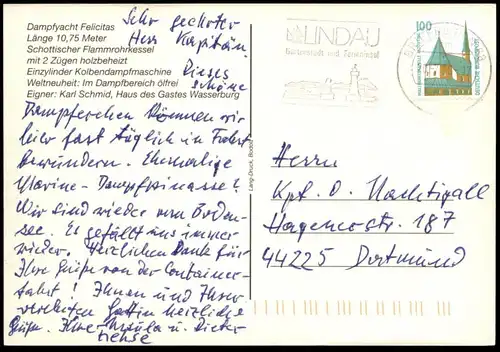 Dampfyacht Felicitas
Länge 10,75 Meter
Schottischer Flammrohrkessel
mit 2 Zügen holzbeheizt
Einzylinder Kolbendampfmaschine
Weltneuheit: Im Dampfbereich ölfrei
Eigner: Karl Schmid, Haus des Gastes Wasserburg
Sehr geehrter
Herr Kapitän.
Dieses
schöne
Dampferchen können wir
hier fast täglich in Fahrt
bewundern. Ehemalige
Marine-Dampfpinasse?
Wir sind wieder am Boden-
see. Es gefällt uns immer
wieder. Herzlichen Dank für
Ihre Grüße von der Container-
fahrt! Ihnen und Ihrer
verehrten Gattin herzliche
Grüße. Ihre Ursula u. Dieter
Lang-Druck, Bodolz
LINDAU
Gartenstadt und Ferieninsel
100
DEUTSCHE BUNDESPOST
Herrn
Kpt. D. Nachtigall
Hagenerstr. 187
44225 Dortmund